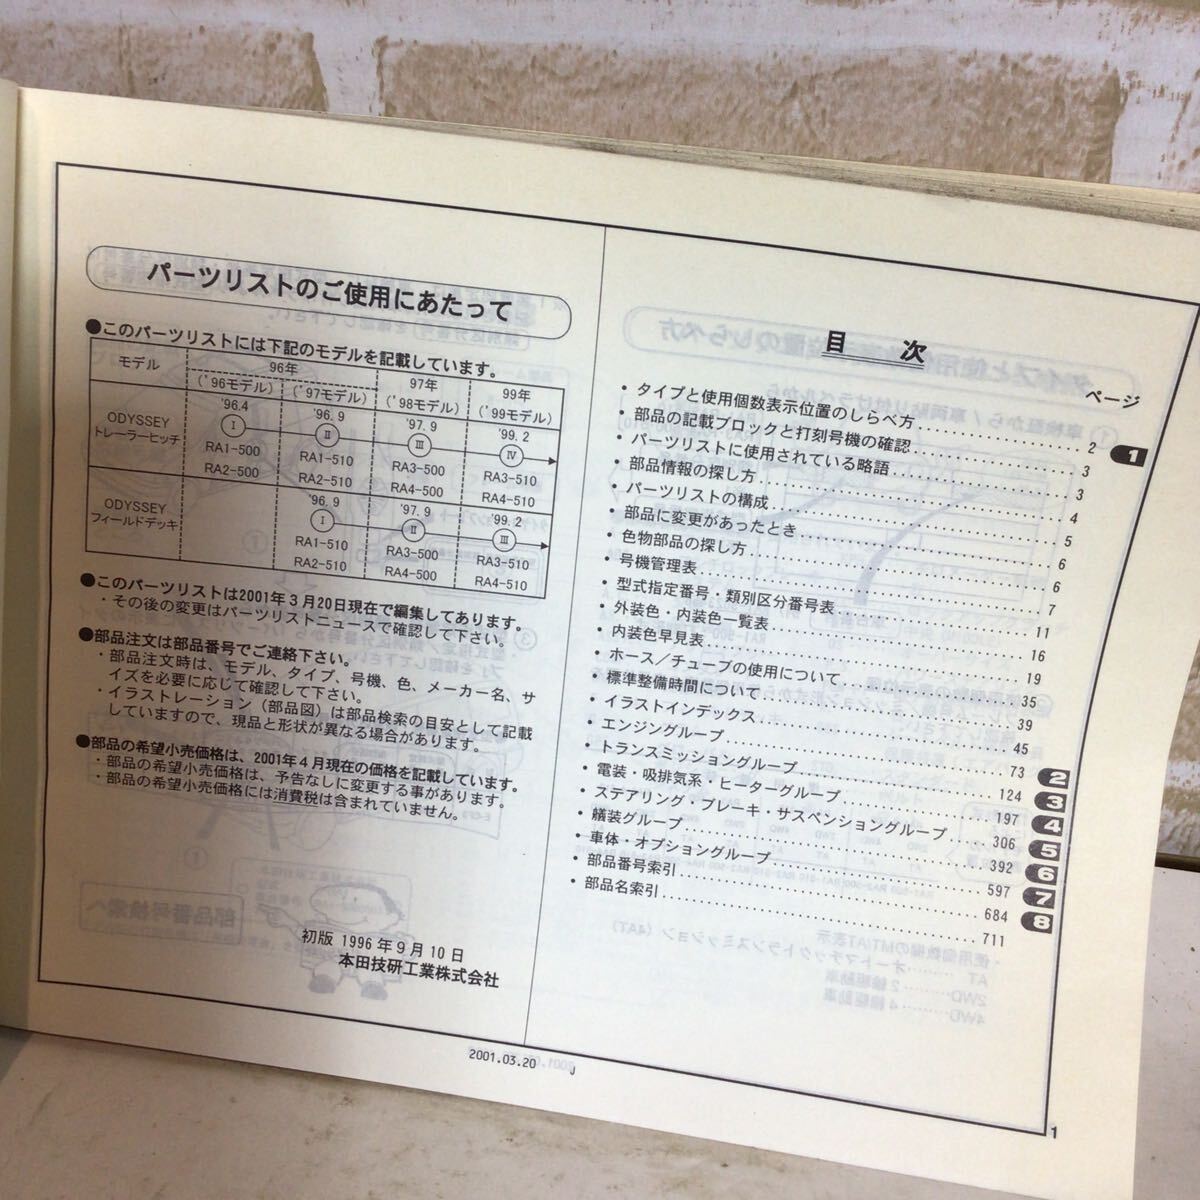 パーツリストのご使用にあたって
●このパーツリストには下記のモデルを記載しています。
モデル 96年 97年 99年
('96モデル) ('97モデル) ('98モデル) ('99モデル)
ODYSSEY トレーラーヒッチ
'96.4 '96.9 '97.9 '99.2
Ⅰ Ⅱ Ⅲ Ⅳ
RA1-500 RA1-510 RA3-500 RA3-510
RA2-500 RA2-510 RA4-500 RA4-510
ODYSSEY フィールドデッキ
'96.9 '97.9 '99.2
Ⅰ Ⅱ Ⅲ
RA1-510 RA3-500 RA3-510
RA2-510 RA4-500 RA4-510
●このパーツリストは2001年3月20日現在で編集してあります。
・その後の変更はパーツリストニュースで確認して下さい。
●部品注文は部品番号でご連絡下さい。
・部品注文時は、モデル、タイプ、号機、色、メーカー名、サ
イズを必要に応じて確認して下さい。
・イラストレーション（部品図）は部品検索の目安として記載
していますので、現品と形状が異なる場合があります。
●部品の希望小売価格は、2001年4月現在の価格を記載しています。
・部品の希望小売価格は、予告なしに変更する事があります。
・部品の希望小売価格には消費税は含まれていません。
初版 1996年9月10日
本田技研工業株式会社
目 次
ページ
・タイプと使用個数表示位置のしらべ方 2 1
・部品の記載ブロックと打刻号機の確認 3
・パーツリストに使用されている略語 3
・部品情報の探し方 4
・パーツリストの構成 5
・部品に変更があったとき 6
・色物部品の探し方 6
・号機管理表 7
・型式指定番号・類別区分番号表 11
・外装色・内装色一覧表 16
・内装色早見表 19
・ホース／チューブの使用について 35
・標準整備時間について 39
・イラストインデックス 45
・エンジングループ 73 2
・トランスミッショングループ 124 3
・電装・吸排気系・ヒーターグループ 197 4
・ステアリング・ブレーキ・サスペンショングループ 306 5
・艤装グループ 392 6
・車体・オプショングループ 597 7
・部品番号索引 684 8
・部品名索引 711
2001.03.20 J
1